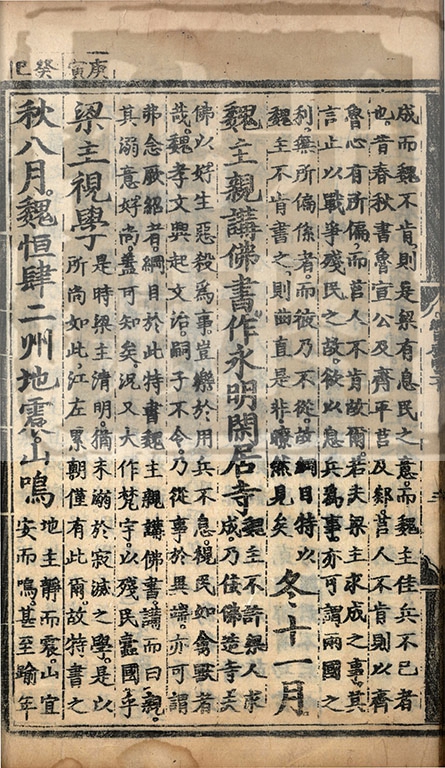 庚寅
癸巳
成而魏不肯則是梁有息民之意而魏主佳兵不已者
也昔春秋書魯宣公及齊平莒及郯莒人不肯則以齊
魯心有所偏而莒人不肯故爾若夫梁主求成之事其
言止以戰爭殘民之故欲以息兵爲事亦可謂兩國之
利無所偏係者而彼乃不從故綱目特以
魏主不肯書之則曲直是非瞭然見矣
冬十一月
魏主親講佛書作永明閑居寺
魏主不許梁人求
成乃佞佛造寺夫
佛以好生惡殺爲事豈樂於用兵不息視民如禽獸者
哉魏孝文興起文治嗣子不令乃從事於異端亦可謂
弗念厥紹者綱目於此特書魏主親講佛書講而曰親
其溺意好尚蓋可知矣況又大作梵宇以殘民蠹國乎
梁主視學
是時梁主清明猶未溺於寂滅之學是以
所尚如此江左累朝僅有此爾故特書之
秋八月魏恒肆二州地震山鳴
地主靜而震山宜
安而鳴甚至踰年